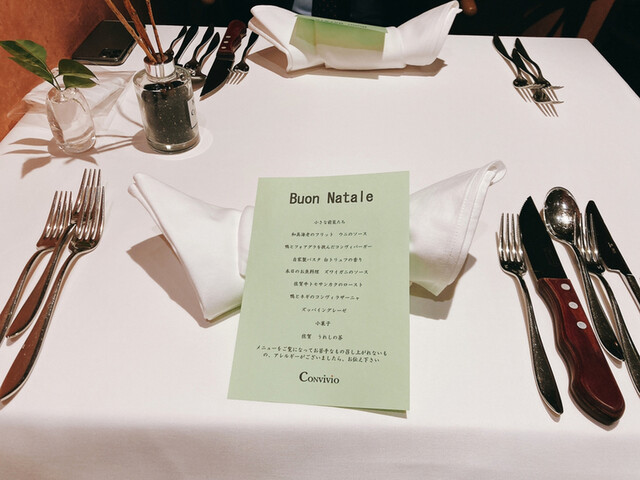 Buon Natale
小さな前菜たち
和真海老のフリット　ウニのソース
鴨とフォアグラを挟んだコンヴィバーガー
自家製パスタ 白トリュフの香り
本日のお魚料理　ズワイガニのソース
佐賀牛トモサンカクのロースト
鴨とネギのコンヴィラザーニャ
ズッパイングレーゼ
小菓子
佐賀　うれしの茶
メニューをご覧になってお苦手なもの召し上がれないも
の、アレルギーがございましたら、お伝え下さい
CONVIVIO